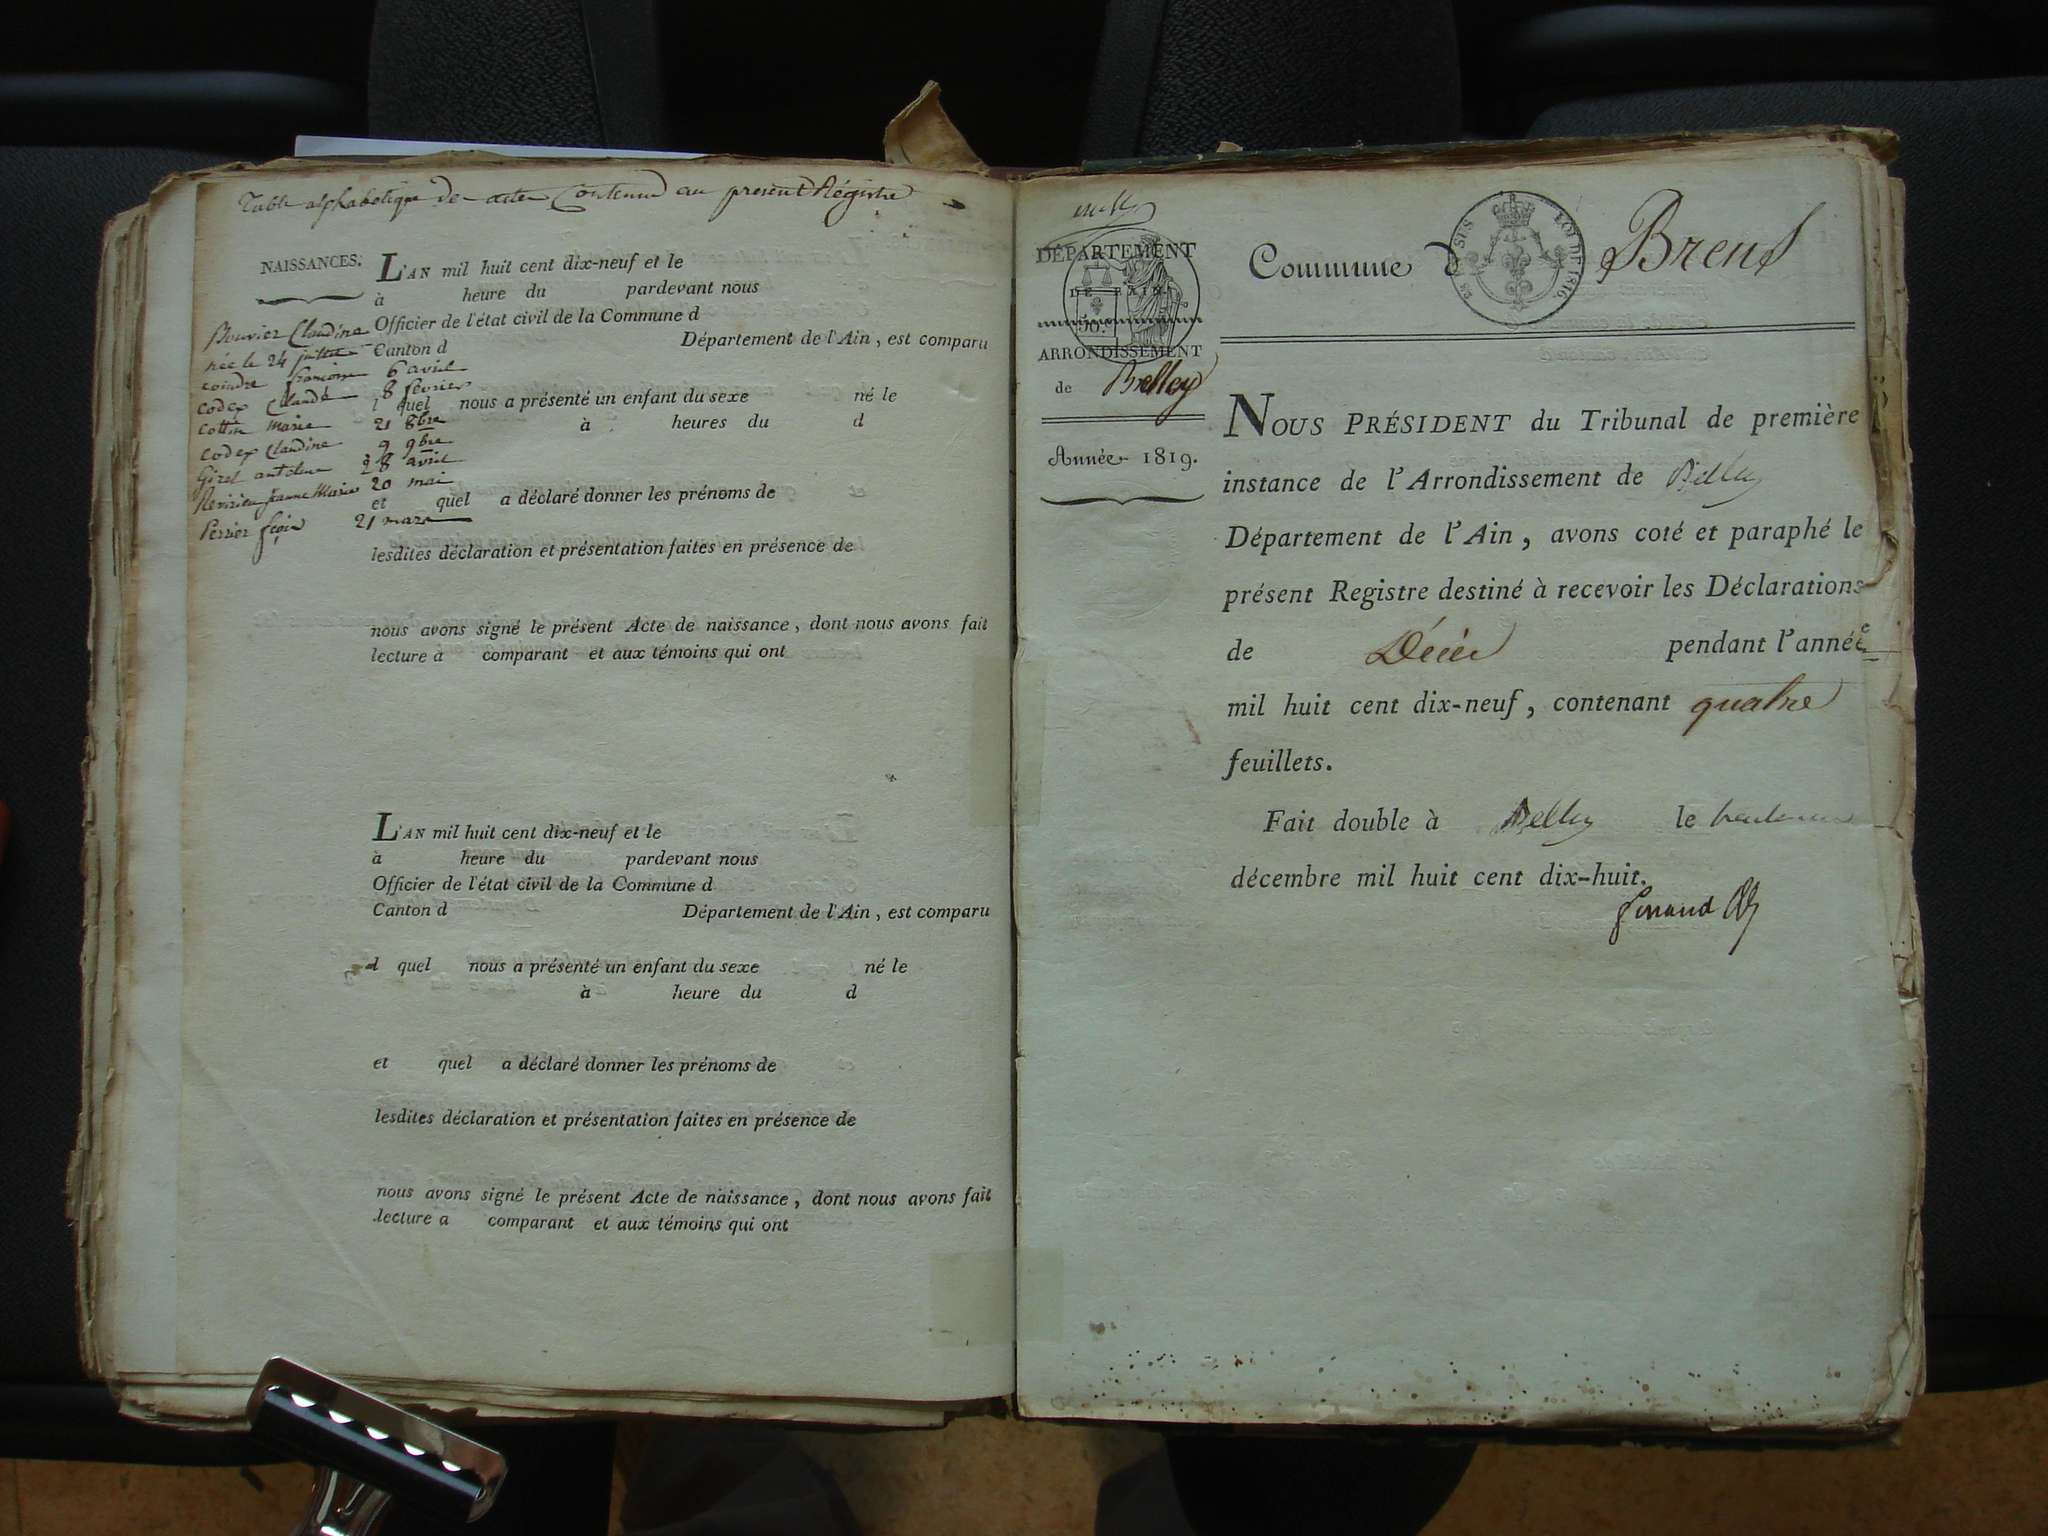 Table alphabétique de actes Contenu au présent Régistre
NAISSANCES.
L'AN mil huit cent dix-neuf et le
à heure du pardevant nous
Officier de l'état civil de la Commune d
Canton d Département de l'Ain, est comparu
l quel nous a présenté un enfant du sexe né le
à heures du d
et quel a déclaré donner les prénoms de
lesdites déclaration et présentation faites en présence de
nous avons signé le présent Acte de naissance, dont nous avons fait
lecture à comparant et aux témoins qui ont
Bouvier Claudine
née le 24 juillet
coindre françoise 6 avril
Codex Claude 8 février
Cottin Marie 21 8bre
Codex Claudine 9 9bre
Girel antelme 28 avril
Jeanne Marie 20 mai
Perrier 21 mars
L'AN mil huit cent dix-neuf et le
à heure du pardevant nous
Officier de l'état civil de la Commune d
Canton d Département de l'Ain, est comparu
d quel nous a présenté un enfant du sexe né le
à heure du d
et quel a déclaré donner les prénoms de
lesdites déclaration et présentation faites en présence de
nous avons signé le présent Acte de naissance, dont nous avons fait
lecture a comparant et aux témoins qui ont
DÉPARTEMENT
DE L'AIN.
ARRONDISSEMENT
de Belley
Année 1819.
Commune d Brens
LOI DE 1816.
NOUS PRÉSIDENT du Tribunal de première
instance de l'Arrondissement de Belley
Département de l'Ain, avons coté et paraphé le
présent Registre destiné à recevoir les Déclarations
de Décès pendant l'année
mil huit cent dix-neuf, contenant quatre
feuillets.
Fait double à Belley le
décembre mil huit cent dix-huit.